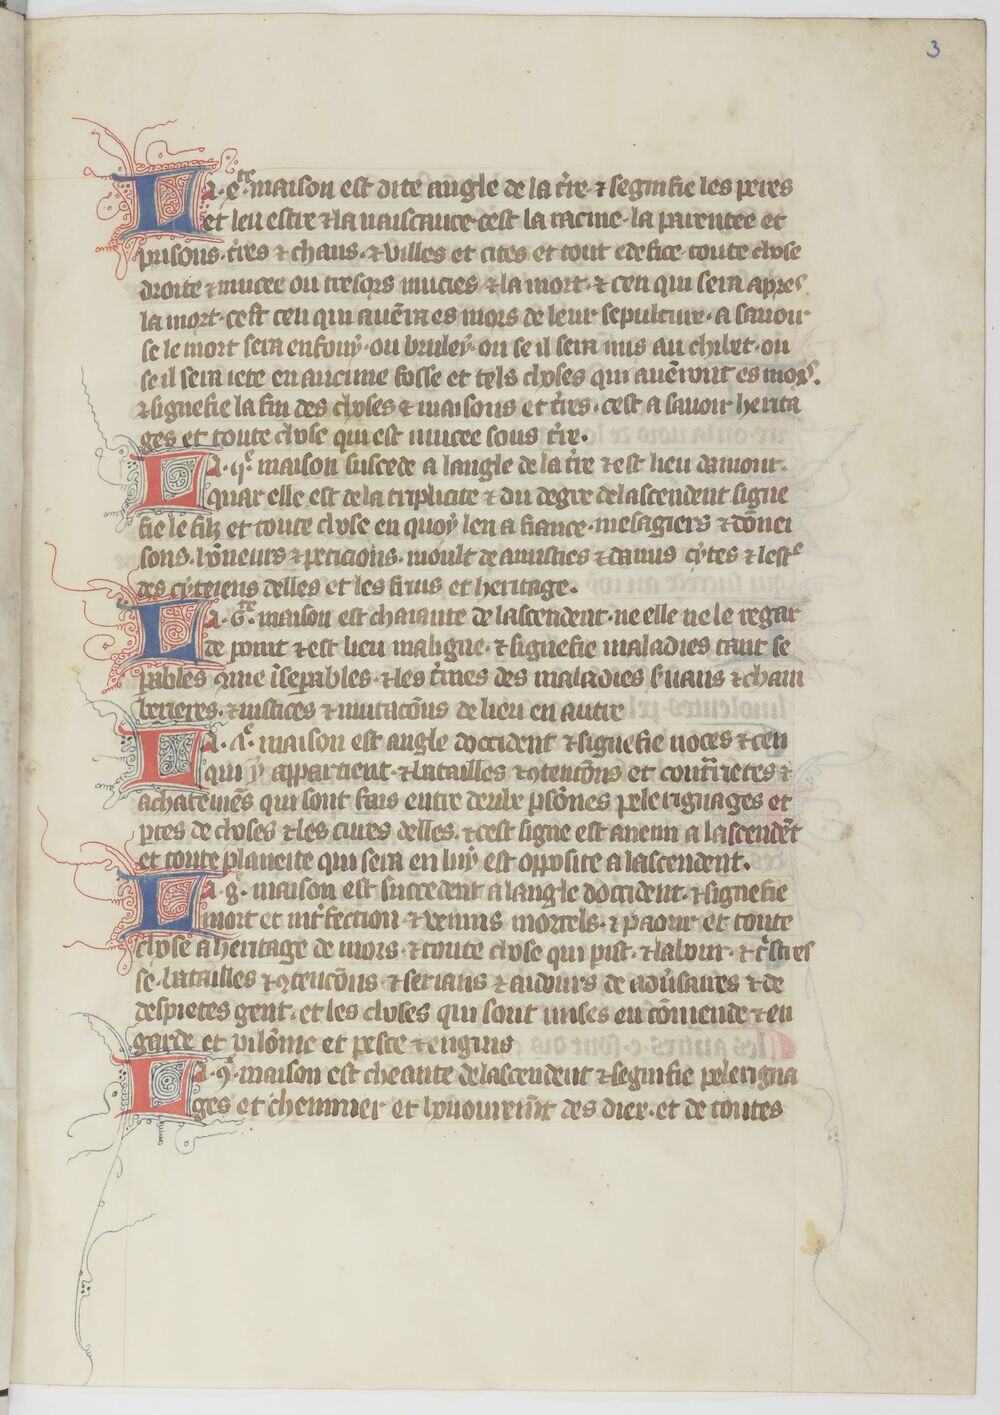 3
La .4.te maison est dite angle de la t're ⁊ segnifie les peres
et leu estre ⁊ la naiscance. cest la racine. la parentee et
prisons. t'res ⁊ chans. ⁊ villes et cites et tout edefice. toute chose
droite ⁊ mucee ou tresors mucies ⁊ la mort. ⁊ cen qui sera apres
la mort. cest cen qui auēra es mors de leur sepulture. a sauoir
se le mort sera enfouy. ou bruley. ou se il sera mis au chibet. ou
se il sera iete en aucune fosse et tels choses qui auēront es mors.
⁊ signefie la fin des choses ⁊ maisons et t'res. cest a sauoir herita
ges et toute chose qui est mucee sous t're.
La .5.e maison succede a langle de la t're ⁊ est lieu damour.
quar elle est de la triplicite ⁊ du degre de lascendent signe
fie le filz et toute chose en quoy len a fiance. mesagiers ⁊ dōnei
sons. hōneurs ⁊ peticions. moult de amisties ⁊ damis cytes ⁊ lest
des cyteiens delles et les frus et heritage.
La .6.te maison est chaiante de lascendent. ne elle ne le regar
de point ⁊ est lieu maligne. ⁊ signefie maladies tant se
pables 9me īsepables. ⁊ les t'mes des maladies s'uans ⁊ cham
berieres. ⁊ iustices ⁊ mutacōns de lieu en autre
La .7.e maison est angle doccident ⁊ signefie noces ⁊ cen
qui y appartient. ⁊ batailles ⁊ 9tencōns et contrarietes ⁊
achatemēs qui sont fais entre deulx psōnes pelerignages et
ptes de choses ⁊ les cures delles. ⁊ cest signe est anemi a lascendēt
et toute planeite qui sera en luy est opposite a lascendent.
La .8.e maison est succedent a langle doccident. ⁊ signefie
mort et int'fection ⁊ venins mortels. ⁊ paour et toute
chose a heritage de mors. ⁊ toute chose qui pist. ⁊ labour. ⁊ t'stres
se. batailles ⁊ 9tencōns ⁊ serians ⁊ aidours de adūsaires ⁊ de
despietes gent. et les choses qui sont mises en cōmende ⁊ en
garde et vilōnie et pesce ⁊ engins
La .9.e maison est cheante de lascendent ⁊ segnifie pelerigna
ges et chemnier et honouremt des diex. et de toutes